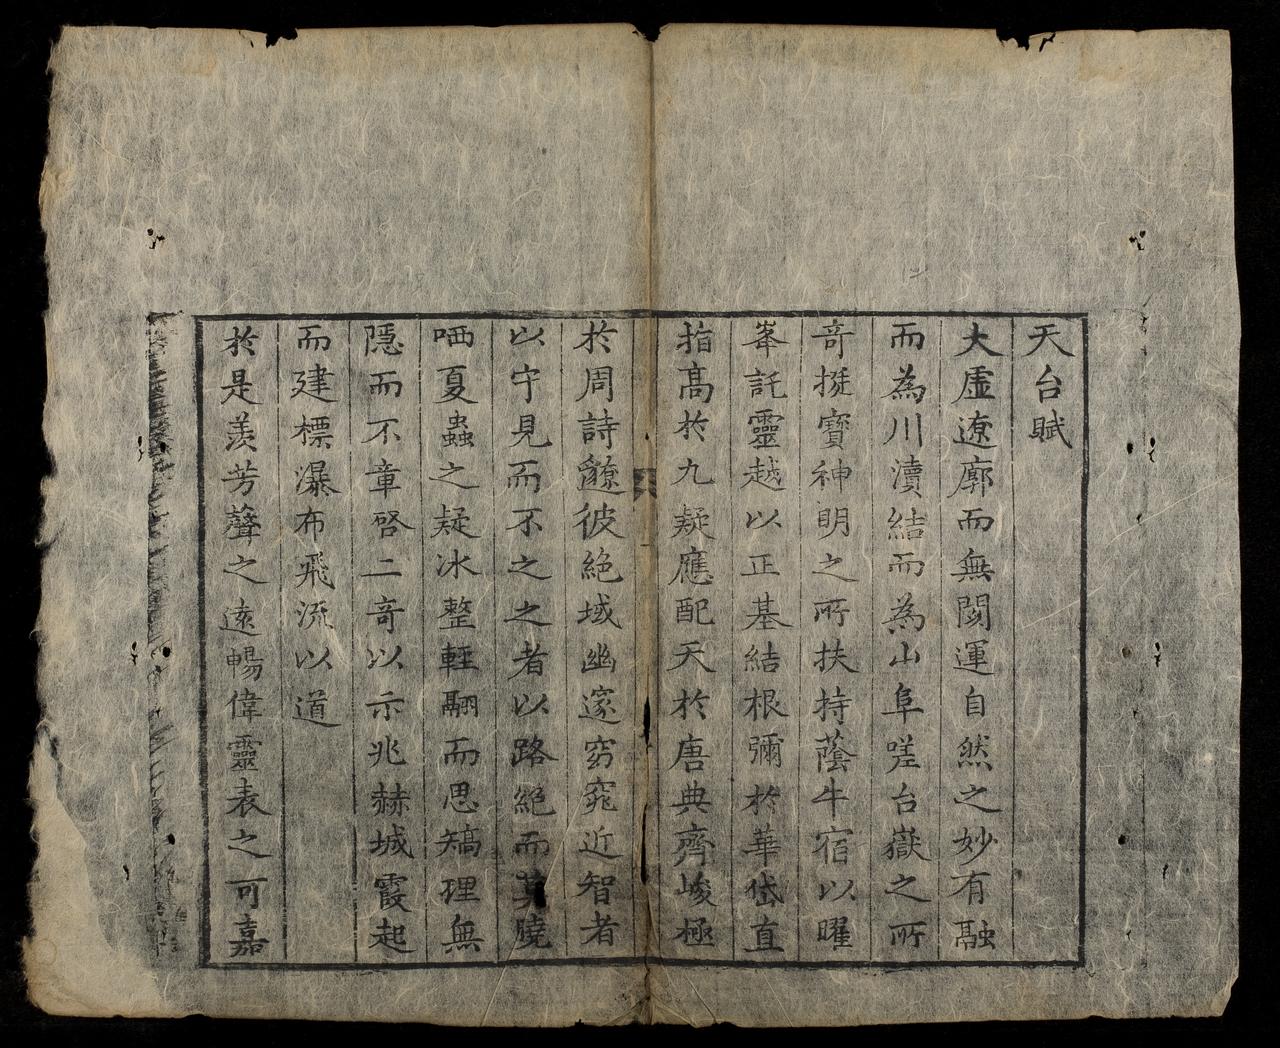 天台賦
大虛遼廓而無閡運自然之妙有融
而為川瀆結而為山阜嗟台嶽之所
竒挺寶神明之所扶持蔭牛宿以曜
峯託靈越以正基結根彌於華岱直
指髙於九疑應配天於唐典齊峻極
於周詩邈彼絶域幽邃窈窕近智者
以守見而不之之者以路絶而莫曉
哂夏蟲之疑冰整輕翮而思矯理無
隱而不章啓二竒以示兆赫城霞起
而建標瀑布飛流以道
於是羨芳聲之遠暢偉靈表之可嘉